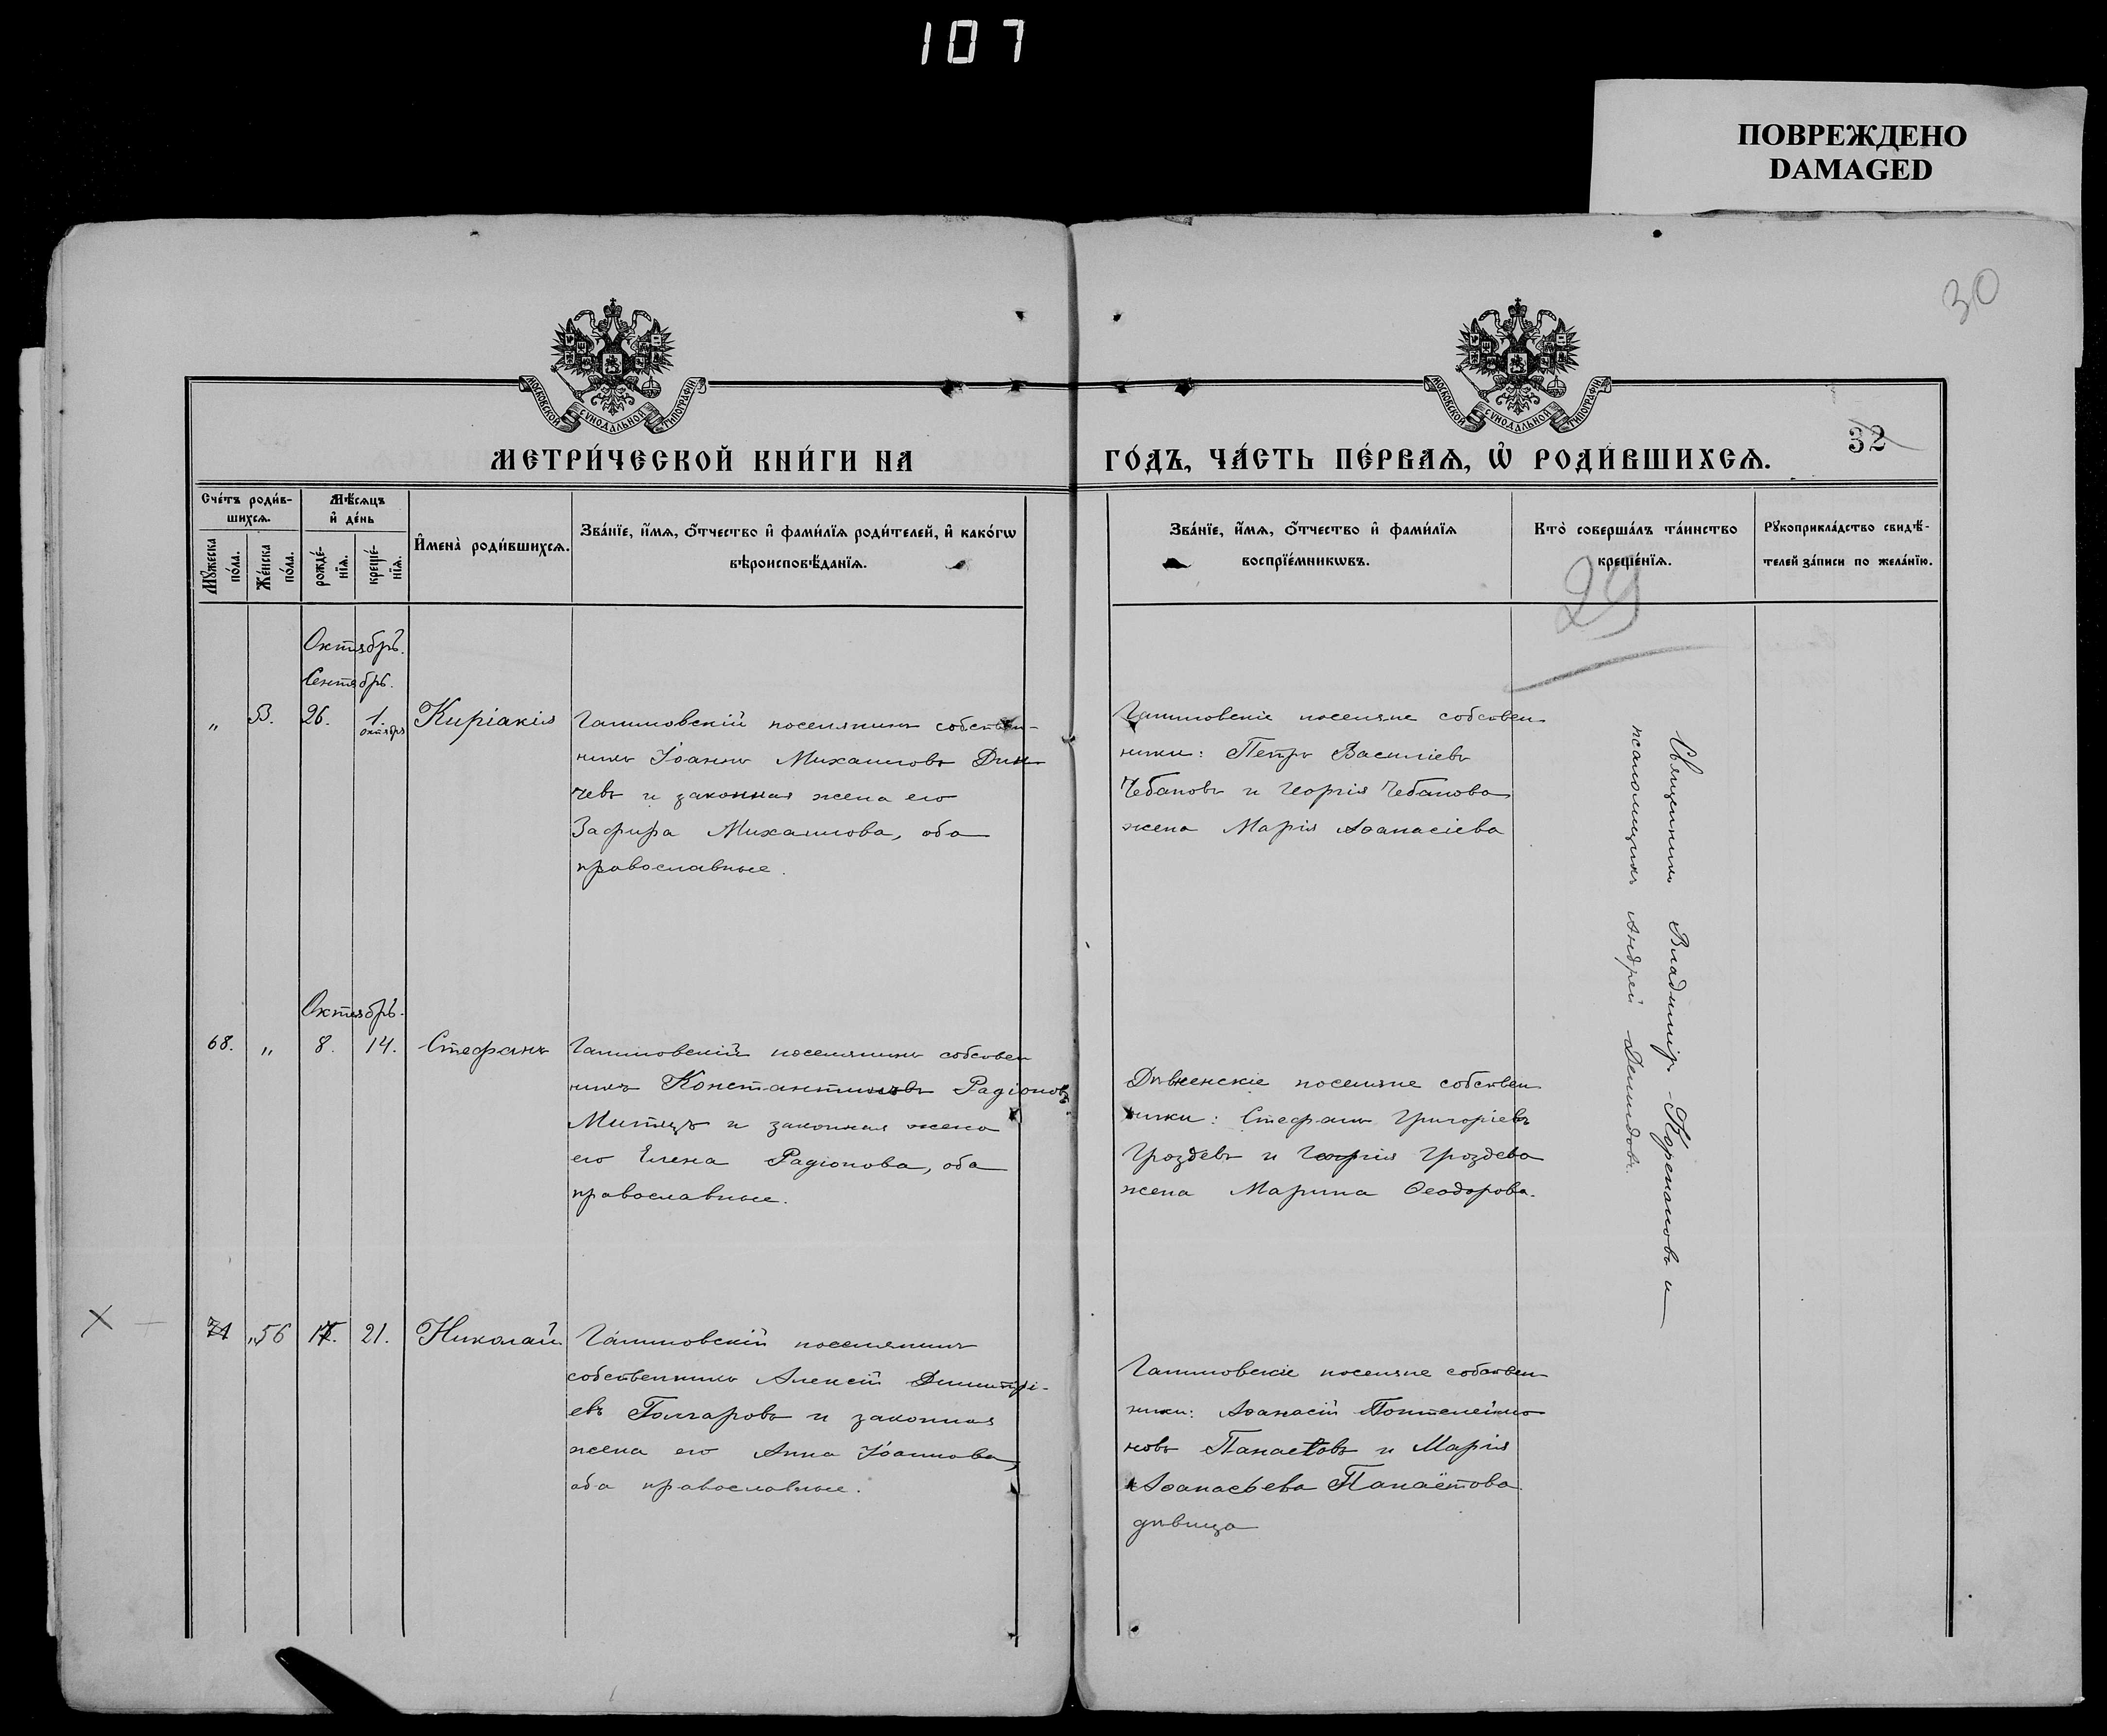 107
ПОВРЕЖДЕНО
DAMAGED
30
МОСКОВСКОЙ СѴНОДАЛЬНОЙ ТИПОГРАФІИ
МОСКОВСКОЙ СѴНОДАЛЬНОЙ ТИПОГРАФІИ
32
МЕТРИ́ЧЕСКОЙ КНИ́ГИ НА
ГО́ДЪ, ЧА́СТЬ ПЕ́РВАѦ, Ѡ҆ РОДИ́ВШИХСѦ.
Сче́тъ роди́в-
шихсѧ.
Мꙋ́жеска
по́ла.
Же́нска
по́ла.
Мѣ́сѧцъ
и҆ де́нь
рожде́-
нїѧ.
креще́-
нїѧ.
И҆мена̀ роди́вшихсѧ.
Зва́нїе, и҆́мѧ, ѻ҆́тчество и҆ фами́лїѧ роди́телей, и҆ како́гѡ
вѣроисповѣ́данїѧ.
Зва́нїе, и҆́мѧ, ѻ҆́тчество и҆ фами́лїѧ
воспрїе́мникѡвъ.
Кто̀ соверша́лъ та́инство
креще́нїѧ.
Рꙋкоприкла́дство свидѣ́-
телей за́писи по жела́нїю.
29
Октябрь.
Сентябрь.
„
26.
1.
октября
Киріакія
Галиловскій поселянинъ собствен-
никъ Іоаннъ Михаиловъ Дин
чевъ и законная жена его
Зафира Михаилова, оба
православные.
Галиловскіе поселяне собствен-
ники: Петръ Василіевъ
Чебановъ и Георгія Чебанова
жена Марія Аѳанасіева
Священникъ Владиміръ и
псаломщикъ Андрей Демидовъ.
Октябрь.
68. „ 8. 14. Стефанъ
Галиловскій поселянинъ собствен
никъ Константинъ Радіоновъ
и законная жена
его Елена Радіонова, оба
православные.
поселяне собствен-
ники: Стефанъ Григоріевъ
Гроздевъ и Георгія Гроздева
жена Марина Ѳеодорова.
X
71 „56 21. Николай
Галиловскій поселянинъ
собственникъ Алексій Димитрі-
евъ Голгаровъ и законная
жена его Анна Іоаннова,
оба православные.
Галиловскіе поселяне собствен-
ники: Аѳанасій Пантелеимо
новъ Панаетовъ и Марія
Аѳанасьева Панаётова
дѣвица